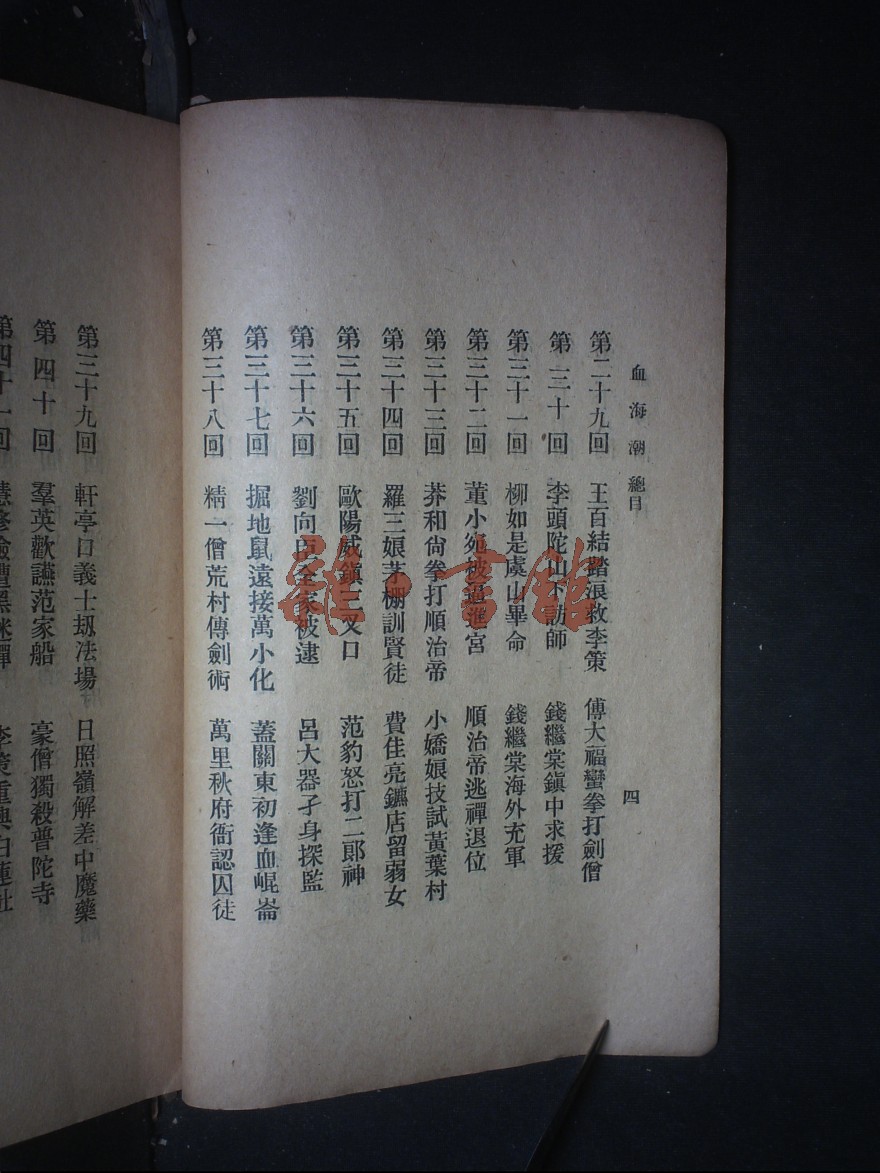 血海潮 總目
四
第二十九回 王百結踏浪救李策 傅大福蠻拳打劍僧
第三十回 李頭陀山下訪師 錢繼棠鎮中求援
第三十一回 柳如是虞山畢命 錢繼棠海外充軍
第三十二回 董小宛被逼進宮 順治帝逃禪退位
第三十三回 莽和尙拳打順治帝 小嬌娘技試黃葉村
第三十四回 羅三娘茅棚訓賢徒 費佳亮鑣店留弱女
第三十五回 歐陽威鎭三叉口 范豹怒打二郎神
第三十六回 劉向臣全家被逮 呂大器孑身探監
第三十七回 掘地鼠遠接萬小化 蓋關東初逢血崐崙
第三十八回 精一僧荒村傳劍術 萬里秋府衙認囚徒
第三十九回 軒亭口義士刼法場 日照嶺解差中魔藥
第四十回 羣英歡讌范家船 豪僧獨殺普陀寺
第四十一回